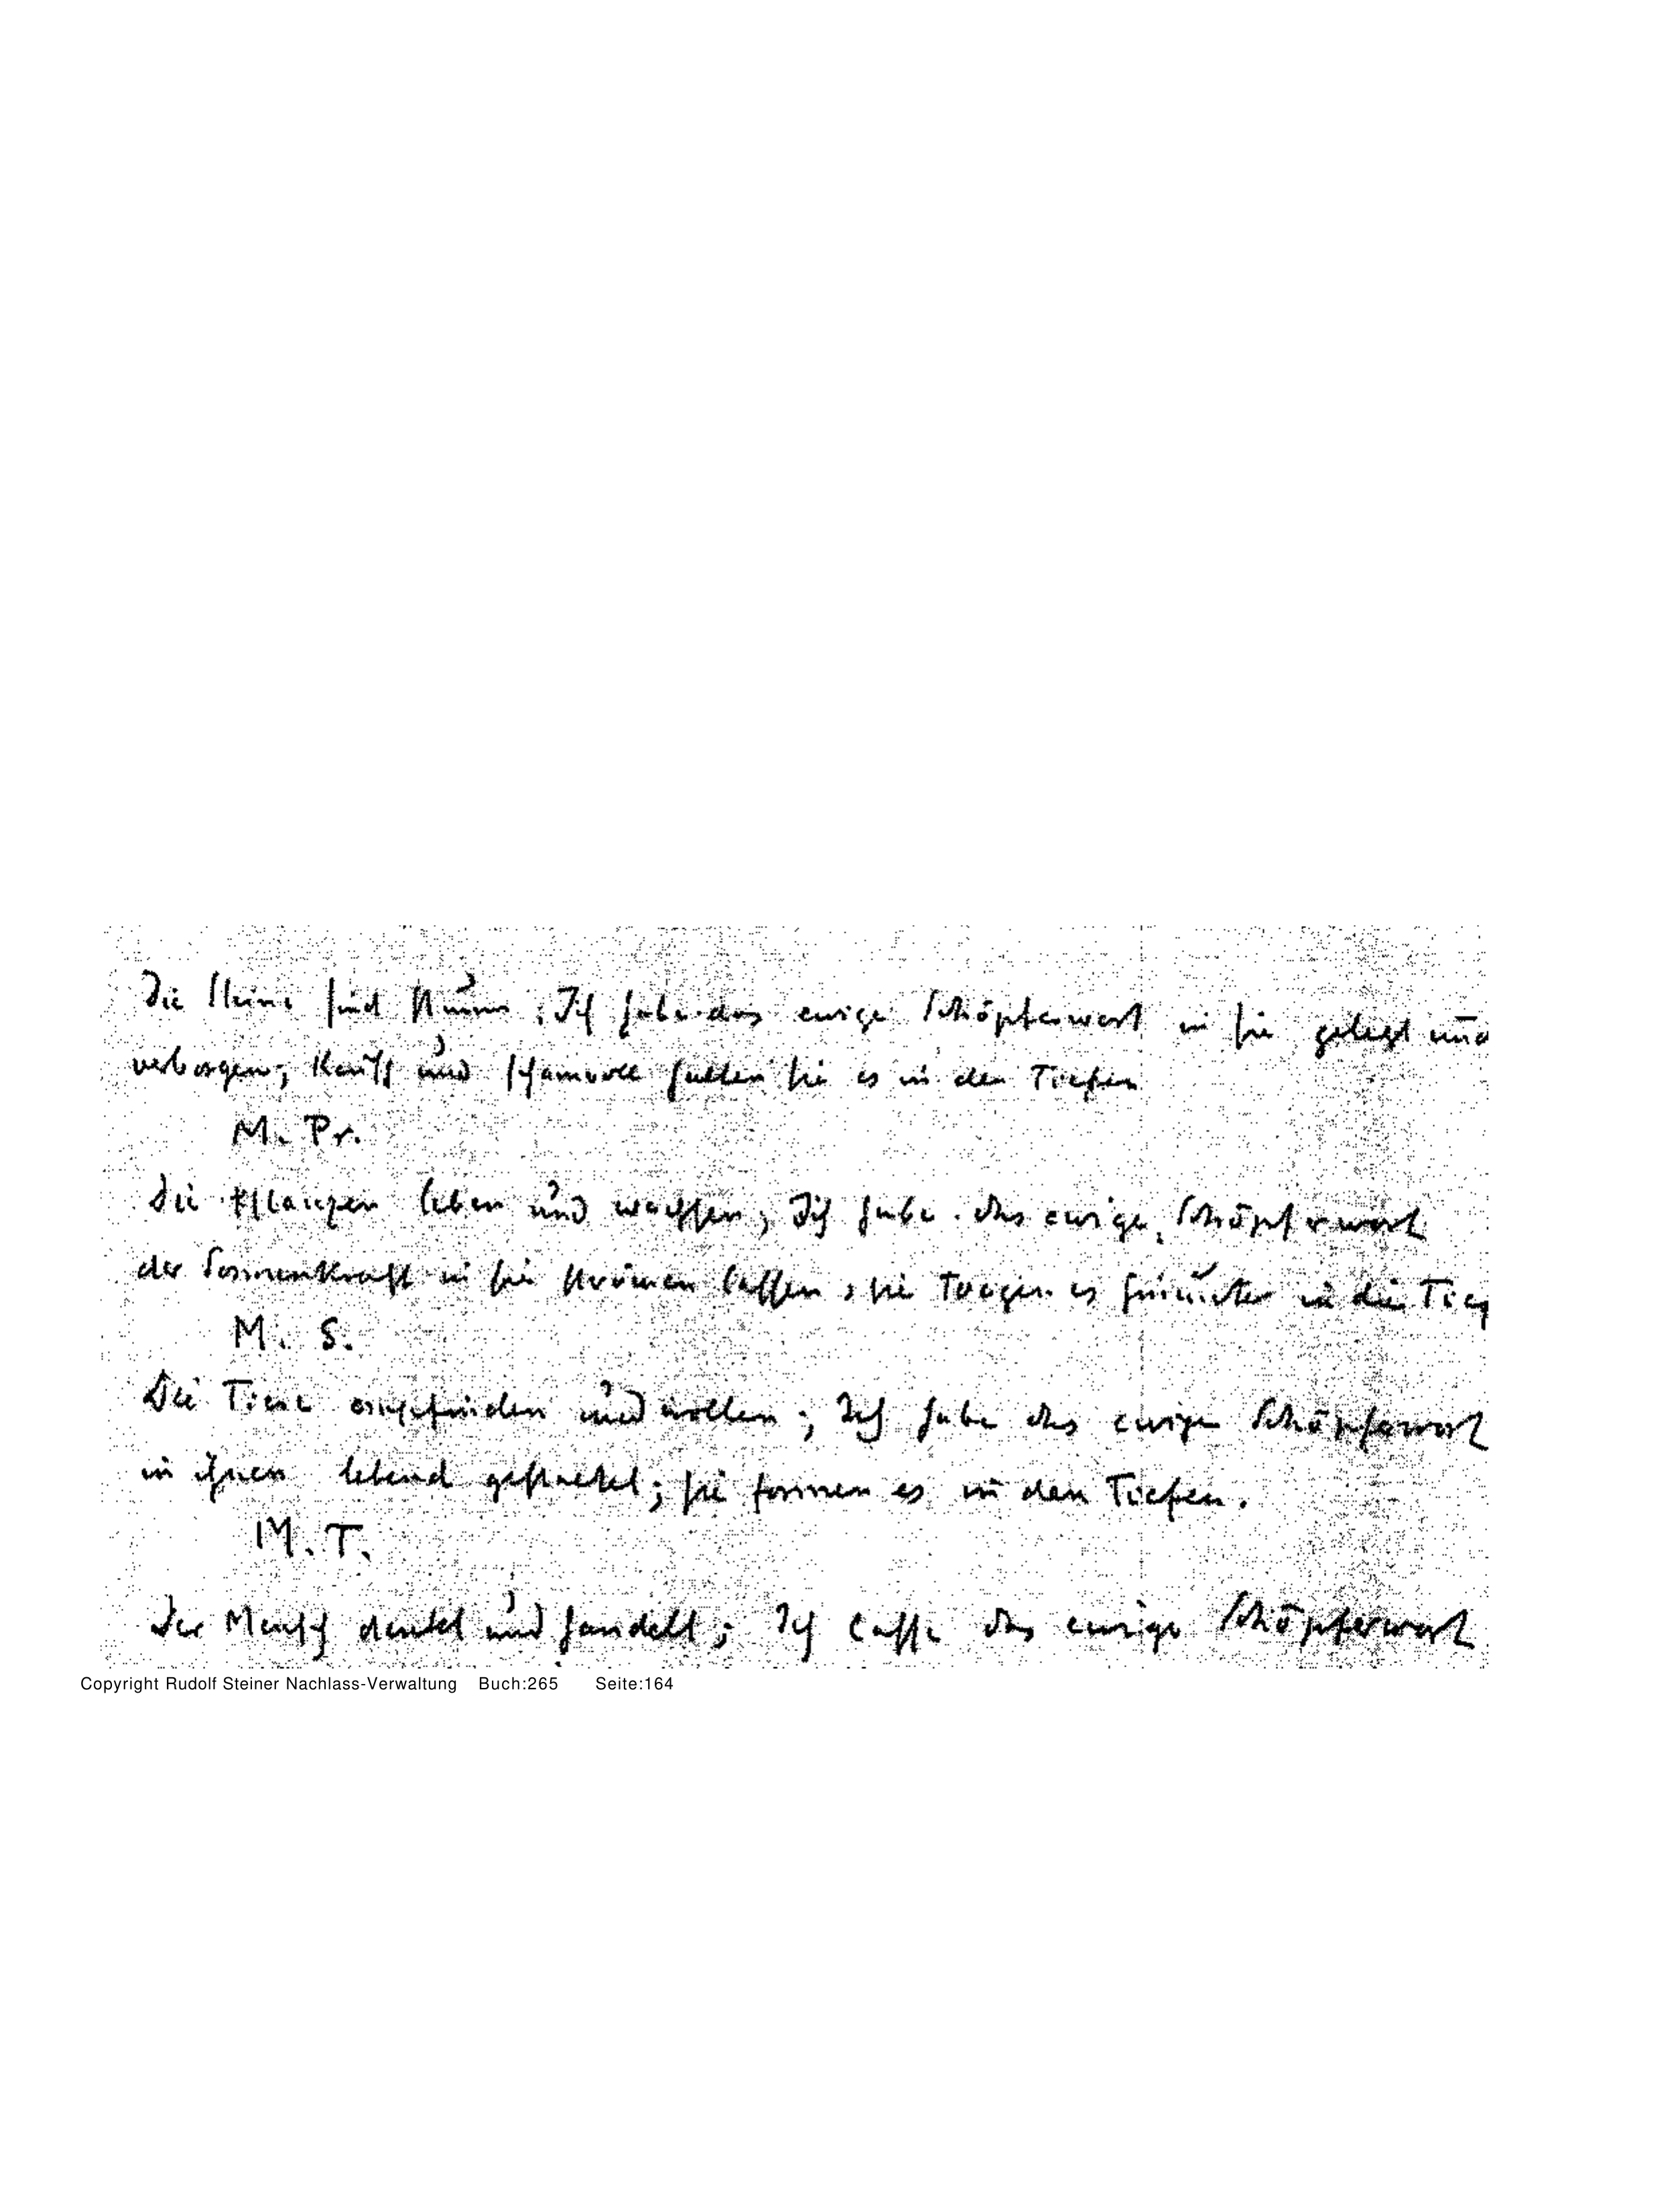 Die Steine sind stumm; Ich habe das ewige Schöpferwort in sie gelegt und
verborgen; keusch und schamvoll halten sie es in den Tiefen
M. Pr.
Die Pflanzen leben und wachsen; Ich habe das ewige Schöpferwort
der Sonnenkraft in sie strömen lassen; sie tragen es hinunter in die Tief
M. S.
Die Tiere empfinden und wollen; Ich habe das ewige Schöpferwort
in ihnen lebend gestaltet; sie formen es in den Tiefen.
M. T.
Der Mensch denket und handelt; Ich lasse das ewige Schöpferwort
Copyright Rudolf Steiner Nachlass-Verwaltung Buch:265 Seite:164